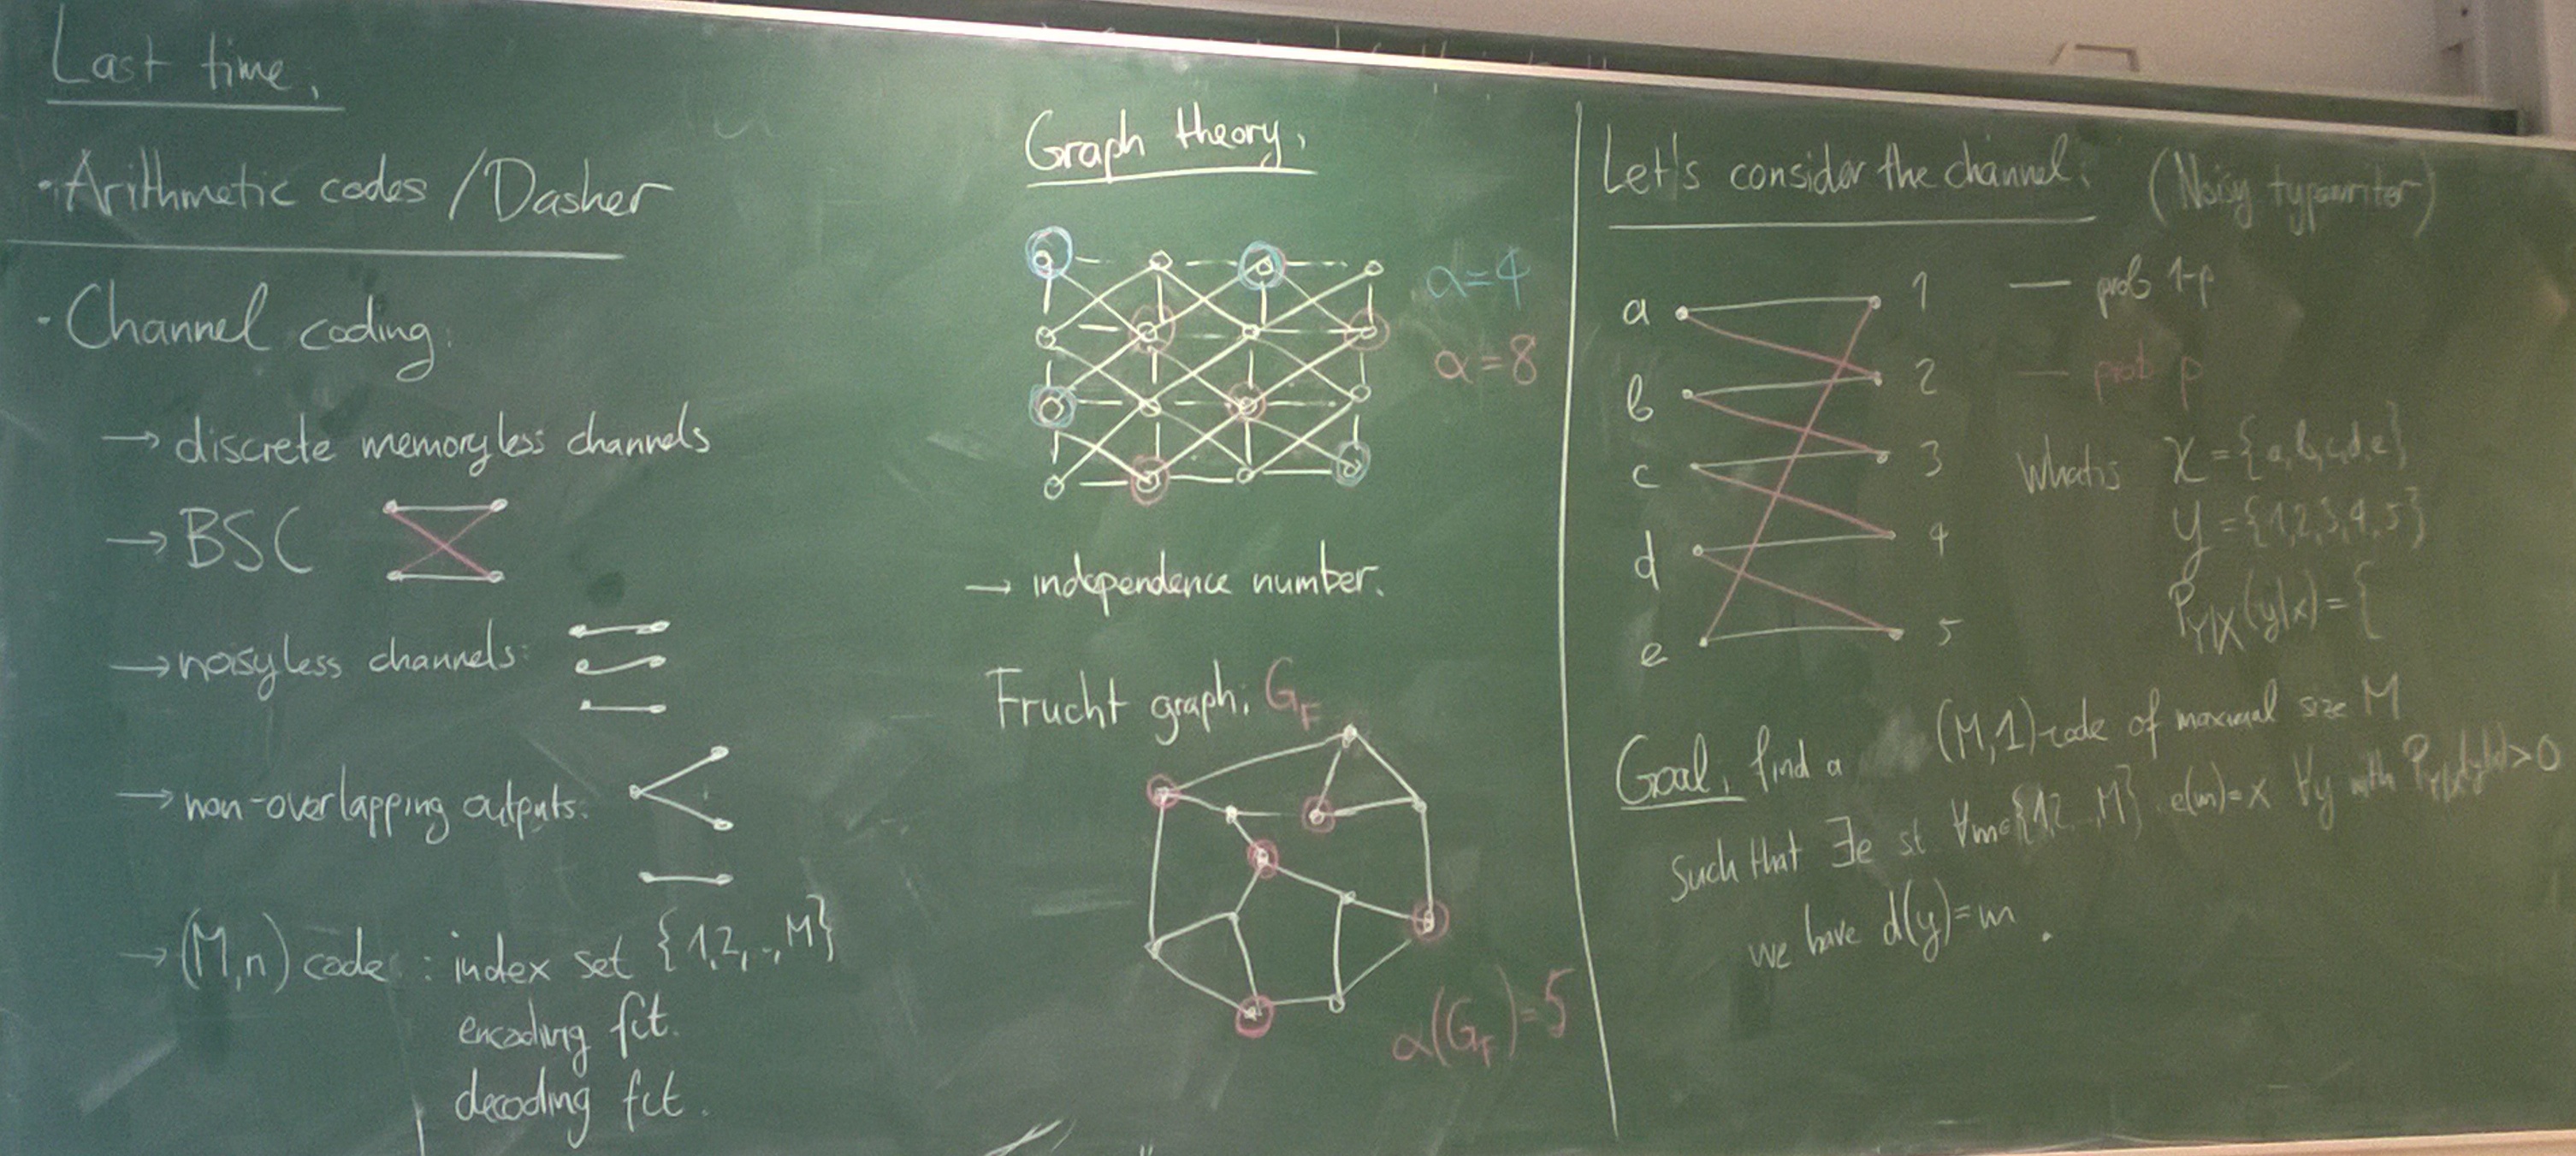 Last time,
·Arithmetic codes /Dasher
·Channel coding:
→ discrete memoryless channels
→ BSC
→ noisyless channels:
→ non-overlapping outputs:
→ (M,n) code : index set {1,2,..,M}
encoding fct.
decoding fct.
Graph theory,
α=4
α=8
→ independence number.
Frucht graph, G_F
α(G_F)=5
Let's consider the channel: (Noisy typewriter)
a 1 — prob 1-p
b 2 — prob p
c 3
d 4
e 5
What is X={a,b,c,d,e}
Y={1,2,3,4,5}
P_Y|X(y|x)={
Goal, find a (M,1)-code of maximal size M
Such that ∃e st ∀m∈{1,2...,M}, e(m)=x ∀y with P_Y|X(y|x)>0
we have d(y)=m.